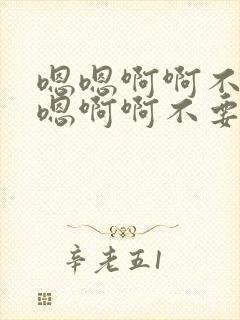 嗯嗯啊啊不
嗯啊啊不要
辛老五1